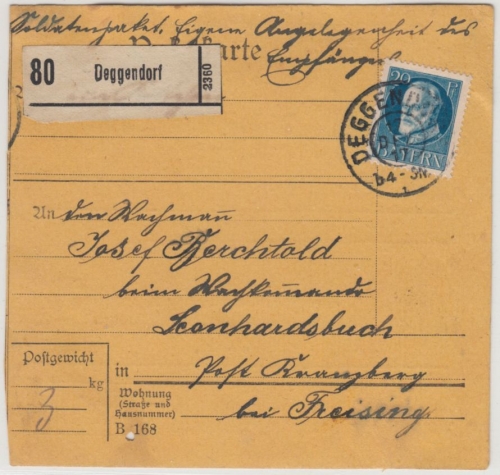 Soldatenpaket. Eigene Angelegenheit des
Empfängers
Postkarte
80 Deggendorf 2360
20 Pf
BAYERN
DEGGENDORF
4-5N.
An den Wachmann
Josef Berchtold
beim Wachkommando
Leonhardsbuch
in Post Kranzberg
bei Freising
Postgewicht
kg
3
Wohnung
(Straße und
Hausnummer)
B 168